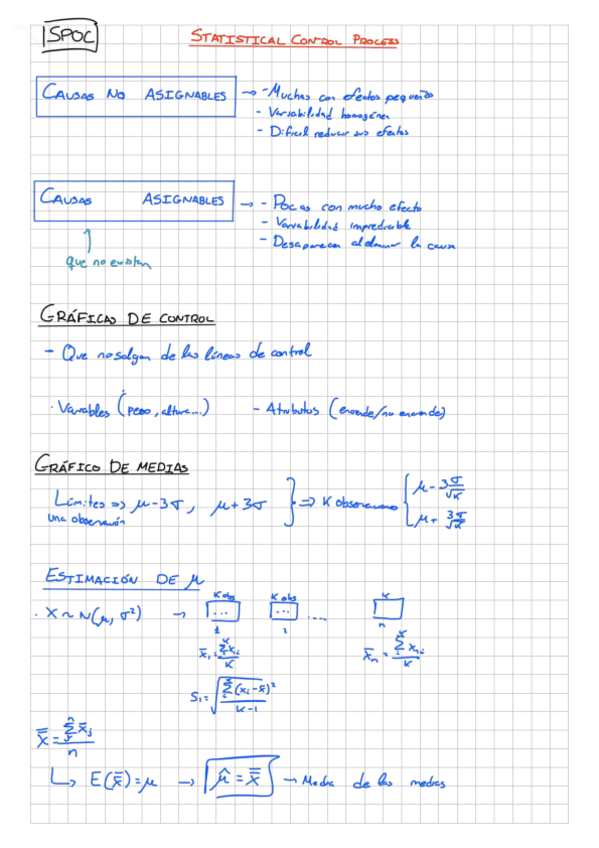 SPOC
STATISTICAL CONTROL PROCESS
CAUSAS NO ASIGNABLES → - Muchas con efectos pequeños
- Variabilidad homogénea
- Difícil reducir sus efectos
CAUSAS ASIGNABLES → - Pocas con mucho efecto
- Variabilidad impredecible
- Desaparecen al eliminar la causa
que no existen
GRÁFICAS DE CONTROL
- Que no salgan de las líneas de control
· Variables (peso, altura...) - Atributos (enciende/no enciende)
GRÁFICO DE MEDIAS
Límites => μ-3σ, μ+3σ } => K observaciones { μ - 3σ/√K
una observación μ + 3σ/√K
ESTIMACIÓN DE μ
K obs K obs K
· X ~ N(μ, σ²) → ... ... ....
1 1 n
x̄₁ = Σxᵢ/K x̄ₙ = Σxᵢ/K
S₁ = √(Σ(xᵢ-x̄)²/(K-1))
x̿ = Σx̄ⱼ/n
↳ E(x̿) = μ → μ̂ = x̿ → Media de las medias